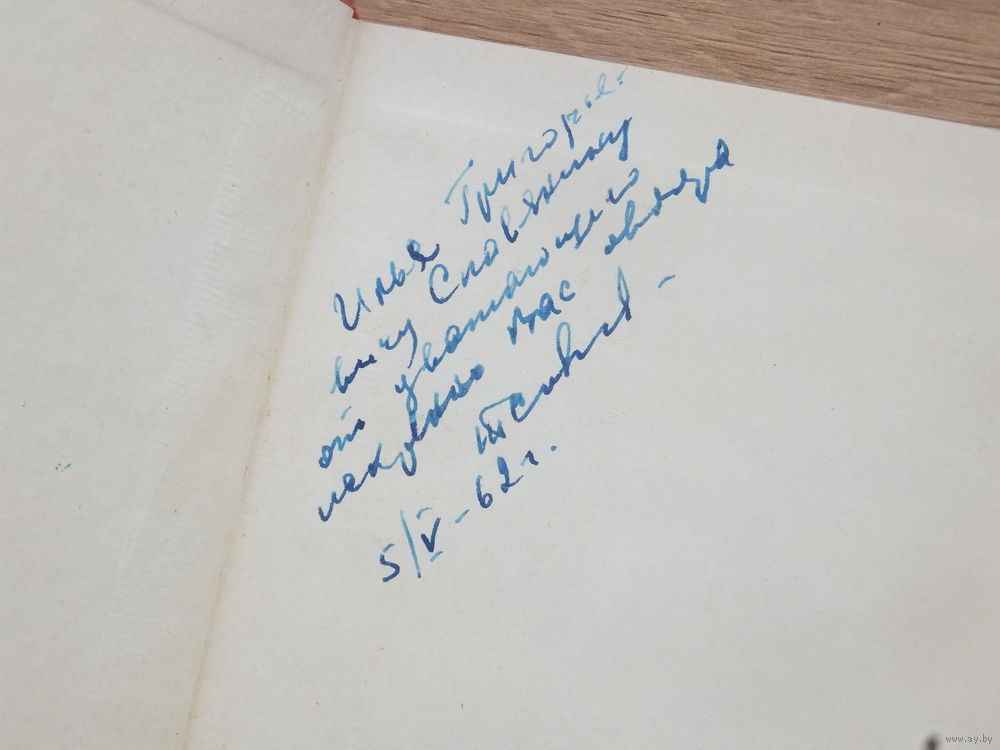 Илья Григорье-
вичу Славянину
от уважающего
искренно Вас автора
5/V-62 г.
www.ay.by